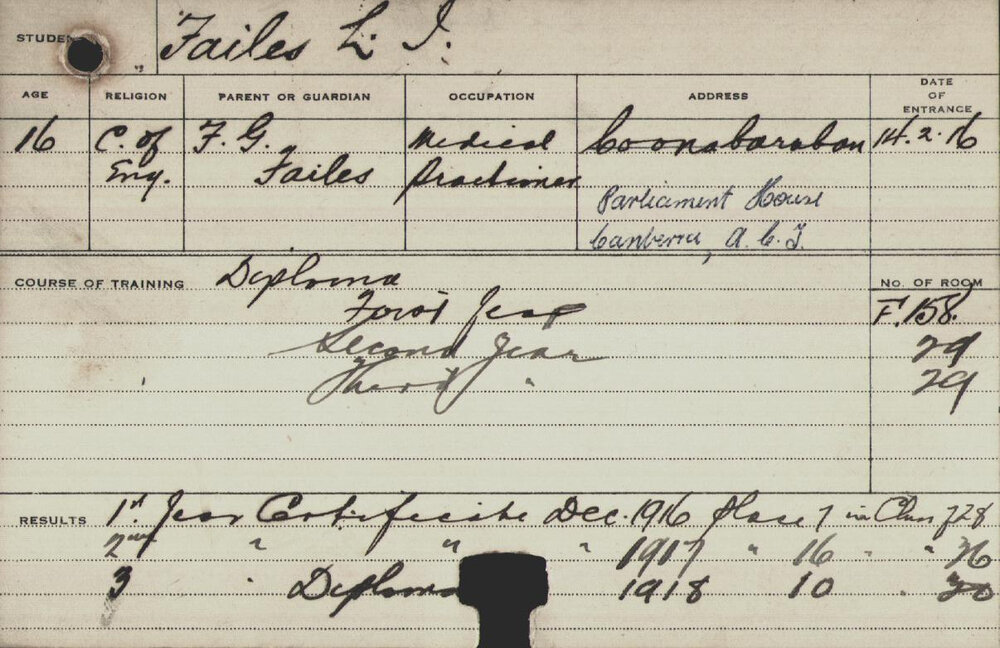 STUDEN Failes L. I.
AGE RELIGION PARENT OR GUARDIAN OCCUPATION ADDRESS DATE OF ENTRANCE
16 C. of F. G. Medical Coonabarabran 14.2.16
Eng. Failes Practioner
Parliament House
Canberra, A.C.T.
COURSE OF TRAINING Diploma No. OF ROOM
First Year F.158.
Second Year 29
Third " 29
RESULTS 1st. Year Certificate Dec. 1916 Place 7 in Class of 28
2nd " " " 1917 " 16 " " 26
3 " Diploma 1918 10 " 20